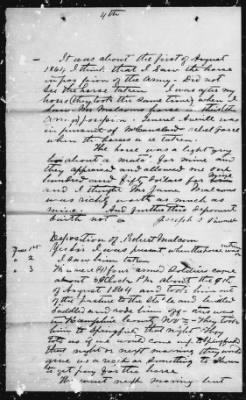 4th
It was about the first of August
1864 I think. that I saw the horse
in possession of the Army - Did not
See the horse taken I was after my
horse (they took the same time) when I
saw Mr Malcom's horse in the
Army's possession. General Averill was
in pursuit of McCausland rebel force
when the horse was taken.
The horse was a light grey
about a match for mine and
they appraised and allowed me one
hundred and fifty dollars for mine
and I thought the same Malcom's
was richly worth as much as
mine. And further this deponent
saith not Joseph
Deposition of Robert Malcom
Ques 1st I was present when the horse was taken
" 2 I saw him taken
" 3 There were 4 four armed Soldiers came
about O'clock PM about the 5th
of August 1864 and took him out
of the pasture to the Stable and bridled
Saddled and rode him off - are was
in Hampshire County W Va - They took
him to Springfield that night They
told us if we would come up to Springfield
that night or next morning they would
give us a receipt or Something to Show
to get pay for the horse
We went next morning but